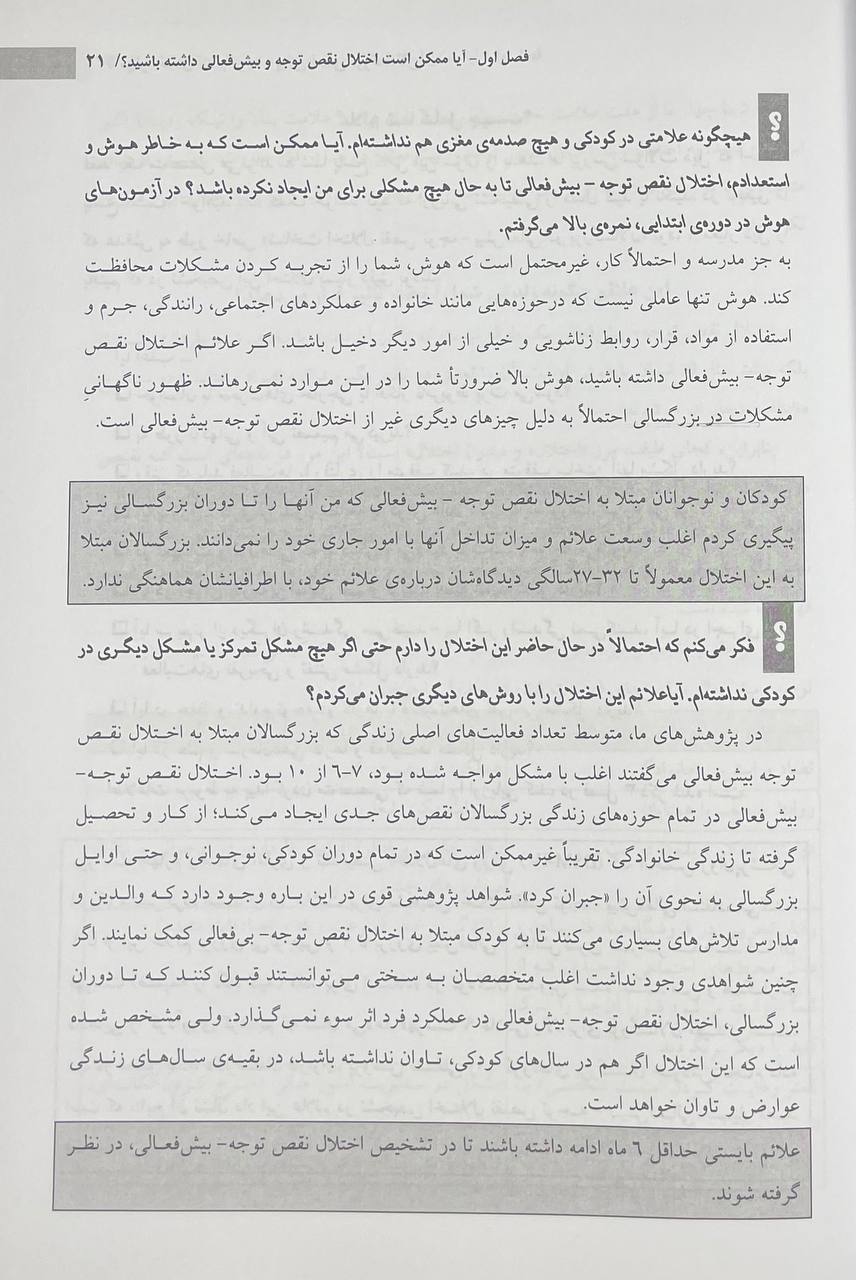 فصل اول- آیا ممکن است اختلال نقص توجه و بیش‌فعالی داشته باشید؟/ ۲۱
؟ هیچگونه علامتی در کودکی و هیچ صدمه‌ی مغزی هم نداشته‌ام. آیا ممکن است که به خاطر هوش و
استعدادم، اختلال نقص توجه - بیش‌فعالی تا به حال هیچ مشکلی برای من ایجاد نکرده باشد؟ در آزمون‌های
هوش در دوره‌ی ابتدایی، نمره‌ی بالا می‌گرفتم.
به جز مدرسه و احتمالاً کار، غیرمحتمل است که هوش، شما را از تجربه کردن مشکلات محافظت
کند. هوش تنها عاملی نیست که درحوزه‌هایی مانند خانواده و عملکردهای اجتماعی، رانندگی، جرم و
استفاده از مواد، قرار، روابط زناشویی و خیلی از امور دیگر دخیل باشد. اگر علائم اختلال نقص
توجه- بیش‌فعالی داشته باشید، هوش بالا ضرورتاً شما را در این موارد نمی‌رهاند. ظهور ناگهانیِ
مشکلات در بزرگسالی احتمالاً به دلیل چیزهای دیگری غیر از اختلال نقص توجه- بیش‌فعالی است.
کودکان و نوجوانان مبتلا به اختلال نقص توجه - بیش‌فعالی که من آنها را تا دوران بزرگسالی نیز
پیگیری کردم اغلب وسعت علائم و میزان تداخل آنها با امور جاری خود را نمی‌دانند. بزرگسالان مبتلا
به این اختلال معمولاً تا ۳۲-۲۷سالگی دیدگاه‌شان درباره‌ی علائم خود، با اطرافیانشان هماهنگی ندارد.
؟ فکر می‌کنم که احتمالاً در حال حاضر این اختلال را دارم حتی اگر هیچ مشکل تمرکز یا مشکل دیگری در
کودکی نداشته‌ام. آیاعلائم این اختلال را با روش‌های دیگری جبران می‌کردم؟
در پژوهش‌های ما، متوسط تعداد فعالیت‌های اصلی زندگی که بزرگسالان مبتلا به اختلال نقص
توجه بیش‌فعالی می‌گفتند اغلب با مشکل مواجه شده بود، ۷-۶ از ۱۰ بود. اختلال نقص توجه-
بیش‌فعالی در تمام حوزه‌های زندگی بزرگسالان نقص‌های جدی ایجاد می‌کند؛ از کار و تحصیل
گرفته تا زندگی خانوادگی. تقریباً غیرممکن است که در تمام دوران کودکی، نوجوانی، و حتی اوایل
بزرگسالی به نحوی آن را «جبران کرد». شواهد پژوهشی قوی در این باره وجود دارد که والدین و
مدارس تلاش‌های بسیاری می‌کنند تا به کودک مبتلا به اختلال نقص توجه- بی‌فعالی کمک نمایند. اگر
چنین شواهدی وجود نداشت اغلب متخصصان به سختی می‌توانستند قبول کنند که تا دوران
بزرگسالی، اختلال نقص توجه- بیش‌فعالی در عملکرد فرد اثر سوء نمی‌گذارد. ولی مشخص شده
است که این اختلال اگر هم در سال‌های کودکی، تاوان نداشته باشد، در بقیه‌ی سال‌های زندگی
عوارض و تاوان خواهد است.
علائم بایستی حداقل ۶ ماه ادامه داشته باشند تا در تشخیص اختلال نقص توجه- بیش‌فعالی، در نظر
گرفته شوند.